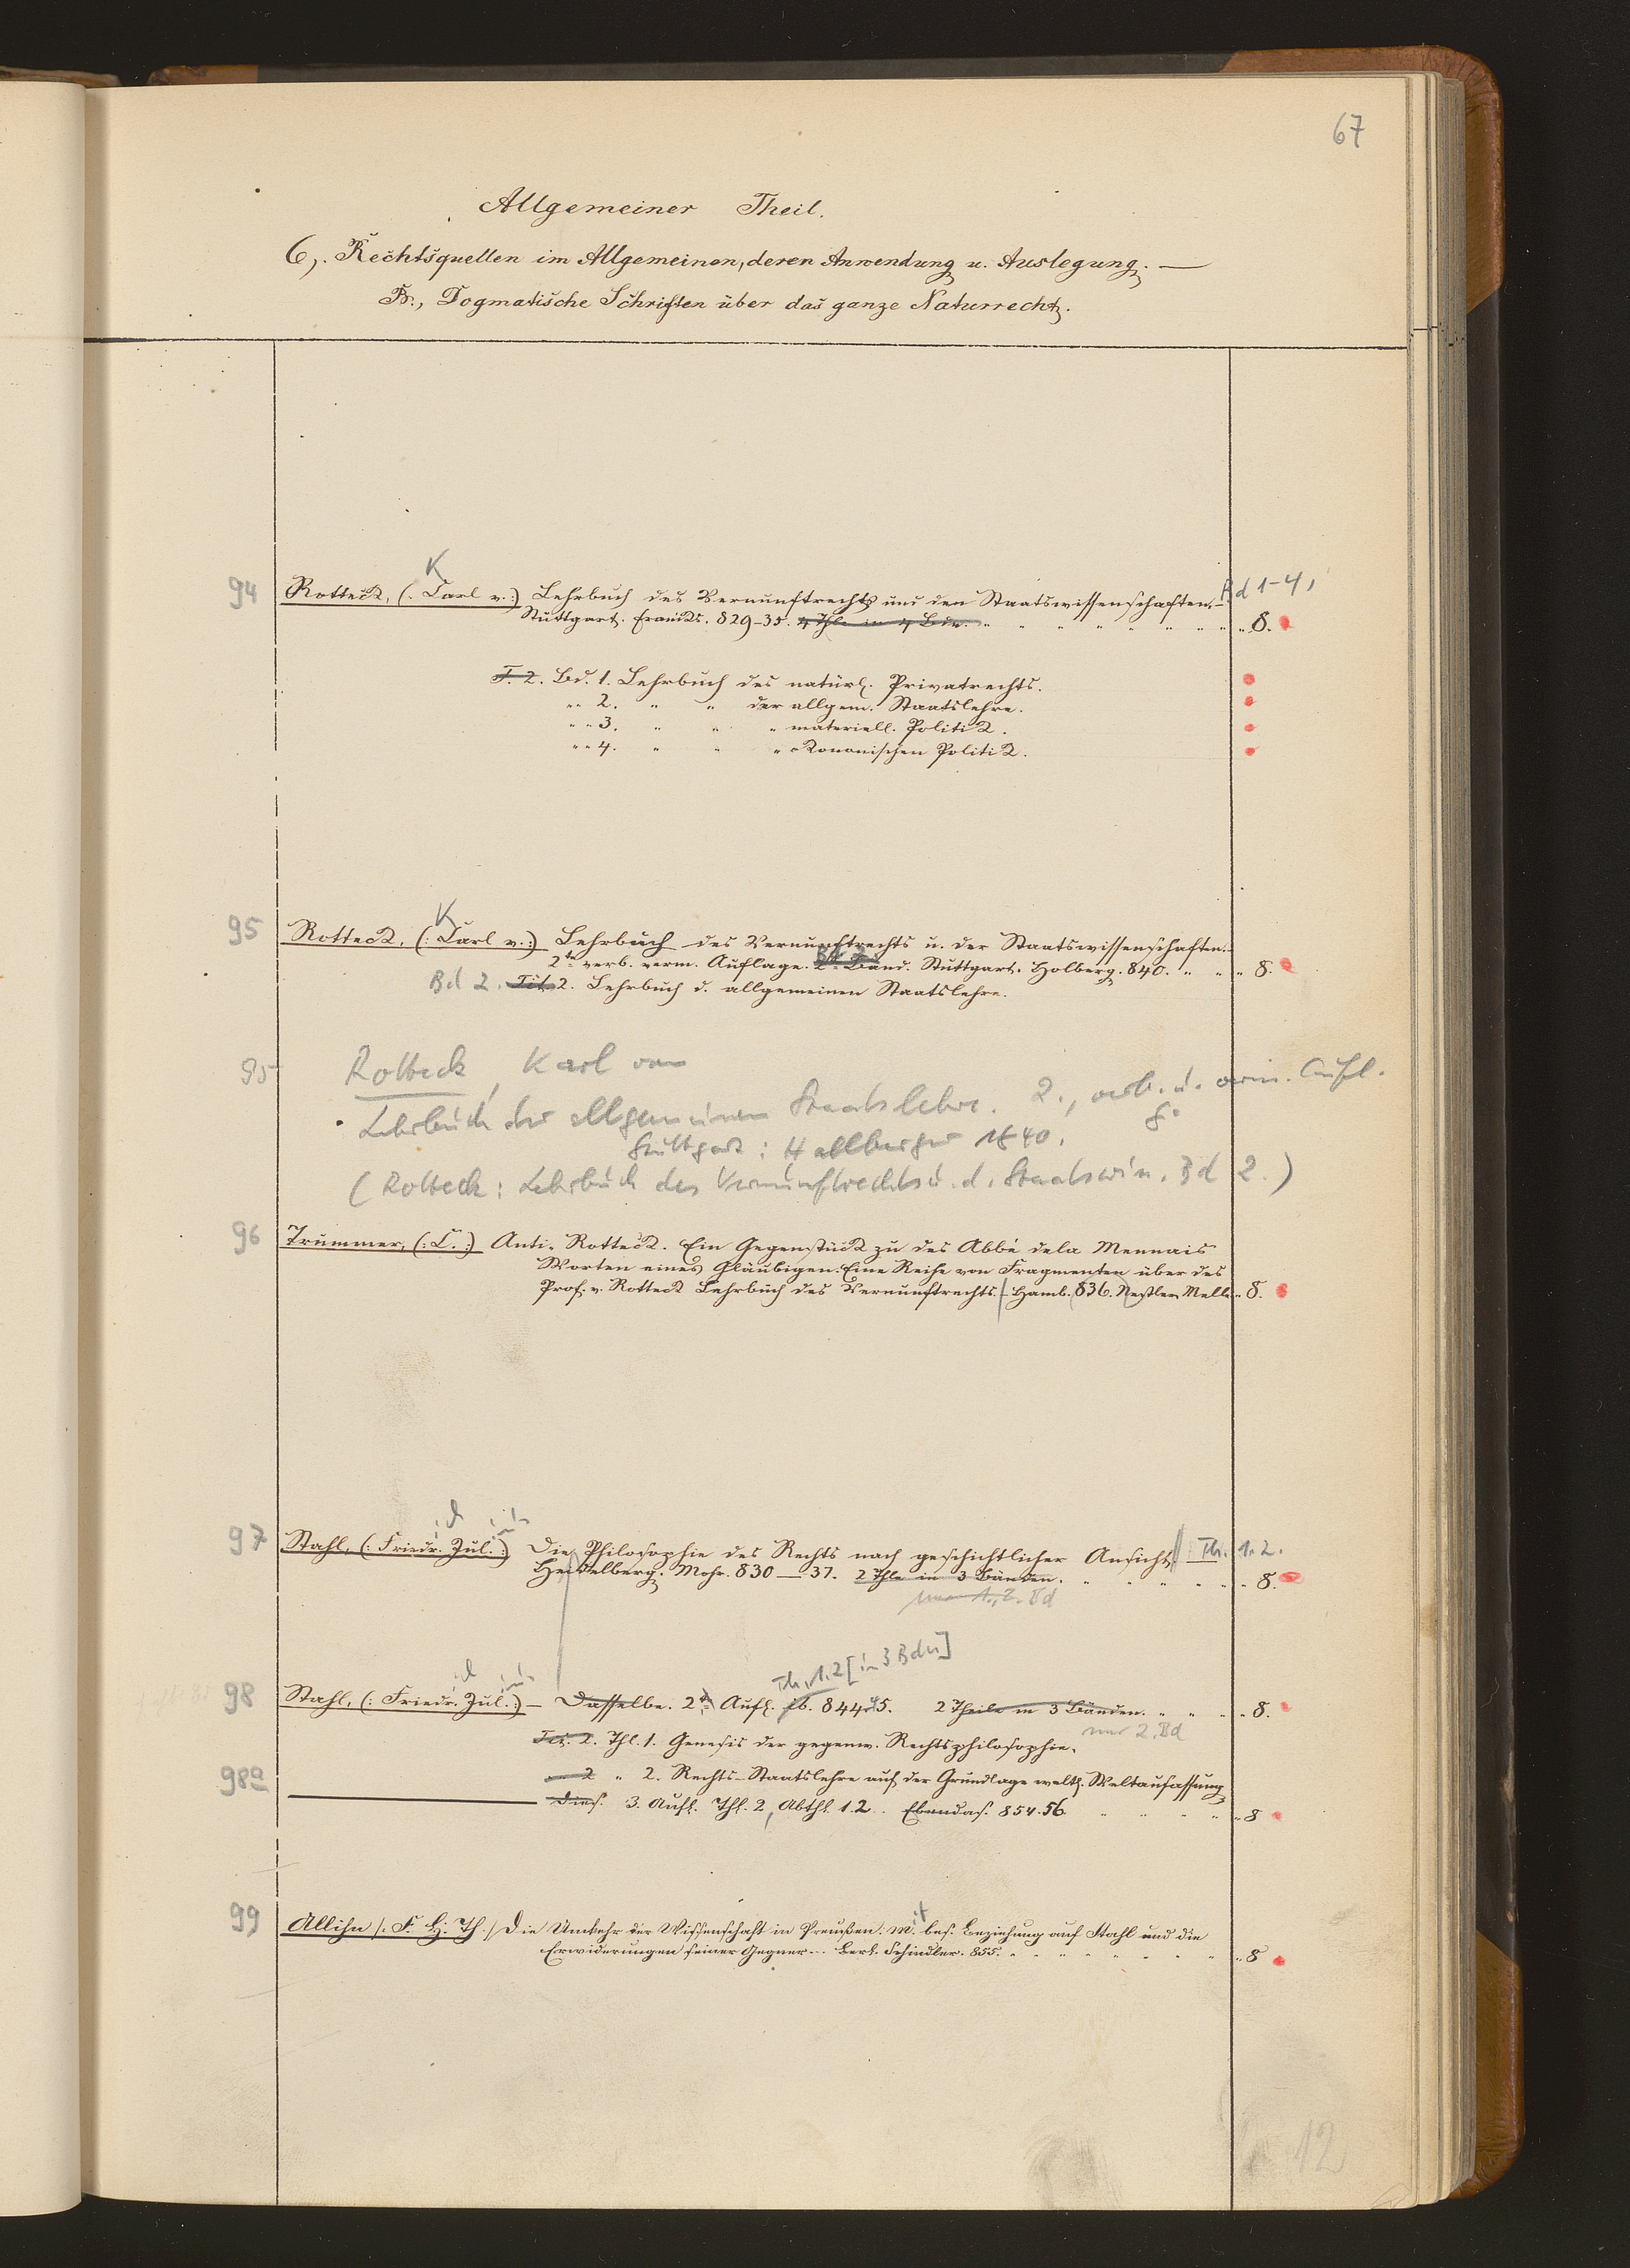 67
Allgemeiner Theil.
6,. Rechtsquellen im Allgemeinen, deren Anwendung u. Auslegung. —
B., Dogmatische Schriften über das ganze Naturrecht.
K
94 Rotteck, (: Carl v.:) Lehrbuch des Vernunftrechts und den Staatswissenschaften.- Bd 1-4,
Stuttgart. Franckh. 829-35. 4 Thle in 4 Bdn. " " " " " " " 8.
T. 2. Bd. 1. Lehrbuch des natürl. Privatrechts.
" " 2. " " der allgem. Staatslehre.
" " 3. " " " materiell. Politik.
" " 4. " " " ökonomischen Politik.
K
95 Rotteck, (: Carl v.:) Lehrbuch des Vernunftrechts u. der Staatswissenschaften.-
2te verb. verm. Auflage. 2r Band. Stuttgart. Holberg. 840. " " " 8.
Bd 2. Tit. 2. Lehrbuch d. allgemeinen Staatslehre.
95 Rotteck, Karl von
Lehrbuch der allgemeinen Staatslehre. 2., verb. u. verm. Aufl.
Stuttgart: Hallberger 1840. 8°
(Rotteck: Lehrbuch des Vernunftrechts u. d. Staatswiss. Bd 2.)
96 Trummer, (: C. :) Anti-Rotteck. Ein Gegenstück zu des Abbé dela Mennais
Worten eines Gläubigen. Eine Reihe von Fragmenten über des
Prof. v. Rotteck Lehrbuch des Vernunftrechts. - Hamb. 836. Nestler Melle " 8.
97 Stahl, (: Friedr. Jul. :) Die Philosophie des Rechts nach geschichtlicher Ansicht Th. 1.2.
Heidelberg. Mohr. 830 — 37. 2 Thle in 3 Bänden. " " " " " 8.
nur 1., 2. Bd
Th. 1.2 [in 3 Bdn]
98 Stahl, (: Friedr. Jul. :) — Dasselbe. 2te Aufl. ib. 844-45. 2 Theile in 3 Bänden. " " " 8.
nur 2. Bd
Tit. 2. Thl. 1. Genesis der gegenw. Rechtsphilosophie.
" 2 " 2. Rechts-Staatslehre auf der Grundlage Weltauffassung
98a — Dies. 3. Aufl. Thl. 2, Abthl. 1.2. Ebendas. 854.56 " " " " 8
99 Allihn /: F. H. Th. :/ Die Umkehr der Wissenschaft in Preußen. Mit bes. Beziehung auf Stahl und die
Erwiderungen seiner Gegner. - Berl. Schindler. 855. " " " " " " 8
12